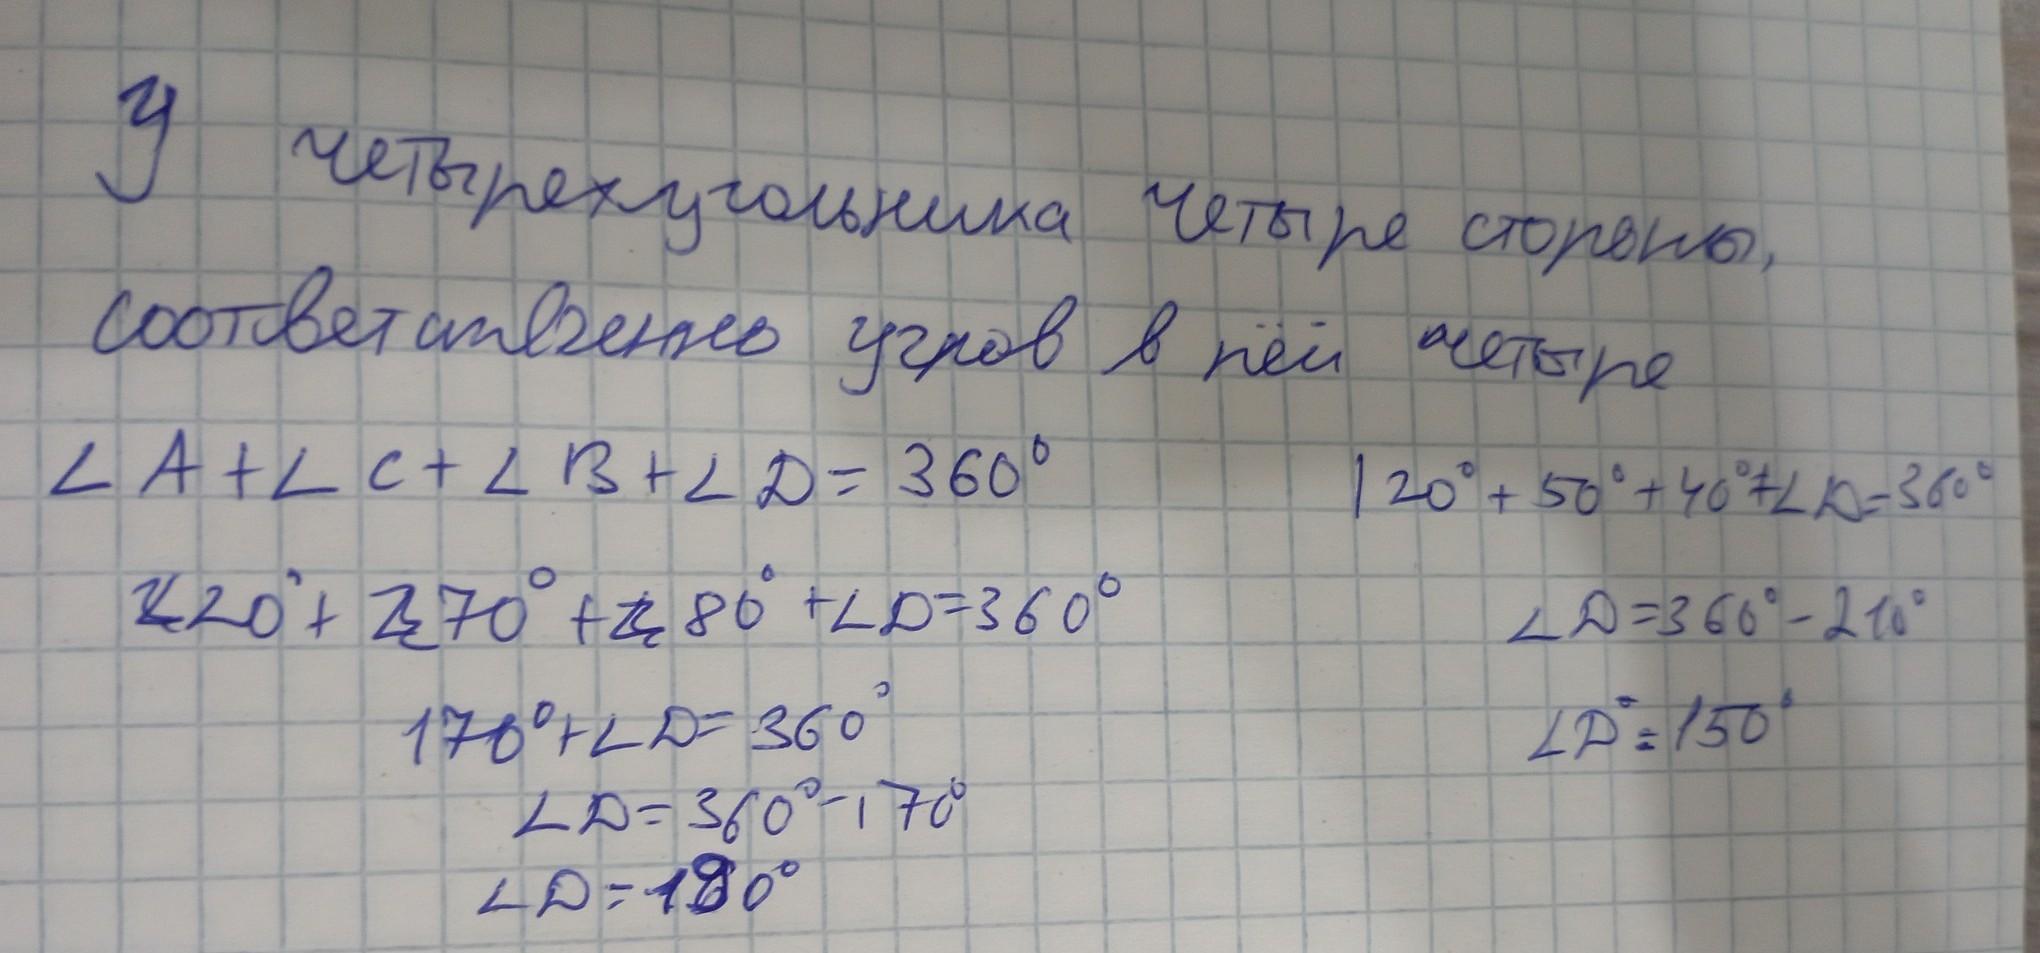 У четырехугольника четыре стороны,
соответственно углов в ней четыре
∠A+∠C+∠B+∠D=360°
20°+70°+80°+∠D=360°
170°+∠D=360°
∠D=360°-170°
∠D=190°
120°+50°+40°+∠D=360°
∠D=360°-210°
∠D=150°